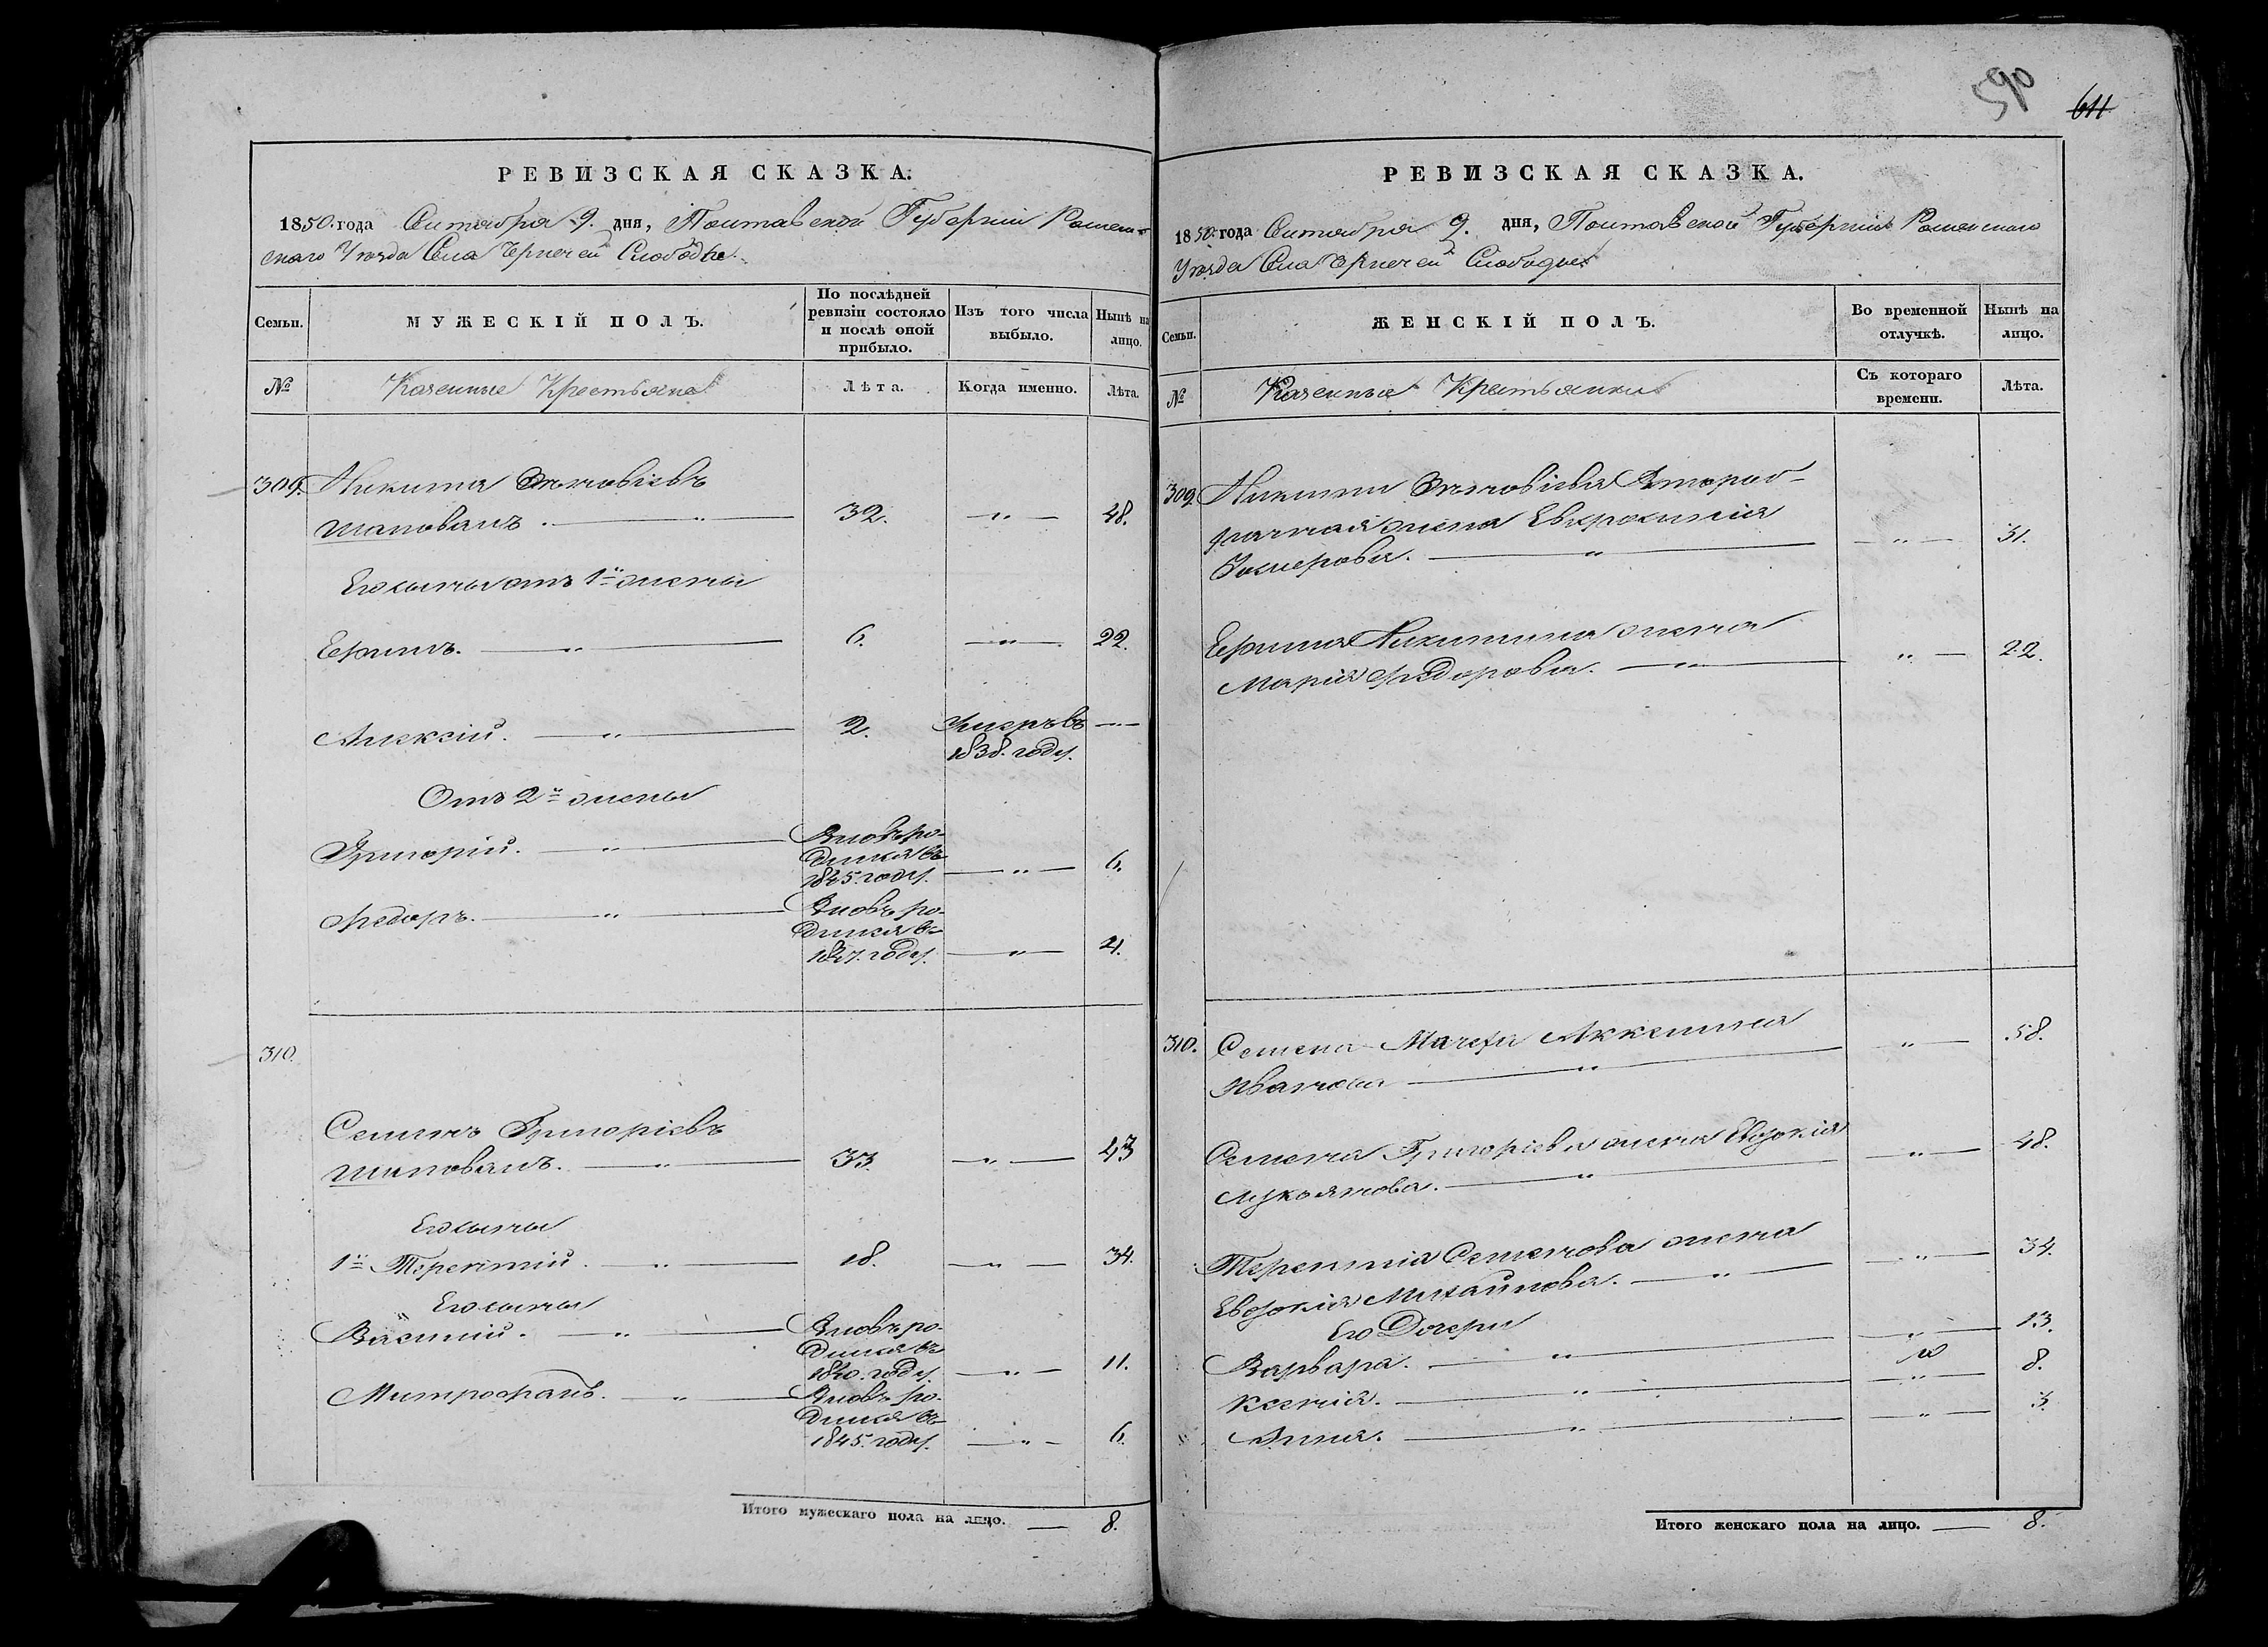 590
611
РЕВИЗСКАЯ СКАЗКА.
1850. года Сентября 9. дня, Полтавской Губерніи Ромен-
скаго Уѣзда Села Чернечей Слободы.
Семьи.
МУЖЕСКІЙ ПОЛЪ.
По послѣдней ревизіи состояло и послѣ оной прибыло.
Изъ того числа выбыло.
Нынѣ на лицо.
№
Казенные Крестьяне
Лѣта.
Когда именно.
Лѣта.
309. Никита
Шаповалъ. — " — 32. — " — 48.
Его сыны отъ 1й жены
Ефимъ. — " — 6. — " — 22.
Алексій. — " — 2. Умеръ въ —"—
1838. году.
Отъ 2й жены
Григорій. — " — Вновь ро-
дился въ
1845. году. — " — 6.
Федоръ. — " — Вновь ро-
дился въ
1847. году. — " — 4.
310.
Семенъ Григоріевъ
Шаповалъ. — " — 33. — " — 43
Его сыны
1й Терентій. — " — 18. — " — 34.
Его сыны
Василій. — " — Вновь ро-
дился въ
1840. году. — " — 11.
Митрофанъ. — " — Вновь ро-
дился въ
1845. году. — " — 6.
Итого мужескаго пола на лицо. — 8.
РЕВИЗСКАЯ СКАЗКА.
1850. года Сентября 9. дня, Полтавской Губерніи Роменскаго
Уѣзда Села Чернечей Слободы
Семьи.
ЖЕНСКІЙ ПОЛЪ.
Во временной отлучкѣ.
Нынѣ на лицо.
№
Казенные Крестьянки
Съ котораго времени.
Лѣта.
309. Никиты Второб-
рачная жена Евфросинія
— " — — " — 31.
Ефима Никитина жена
Марія Федорова. — " — " — 22.
310. Семена Мачеха Аксинія
Иванова — " — " — 58.
Семена Григоріева жена Евдокія
Лукьянова. — " — " — 48.
Терентія Семенова жена
Евдокія Михайлова. — " — — " — 34.
Его Дочери
Варвара. — " — — " — 13.
Ксенія. — " — — " — 8.
Анна. — " — — " — 3.
Итого женскаго пола на лицо. — 8.